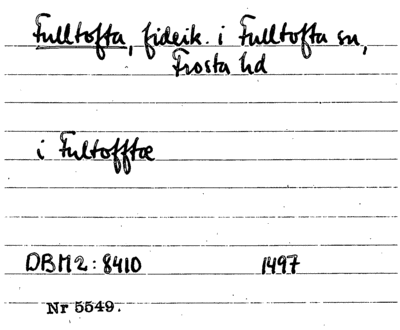 Fulltofta, fideik. i Fulltofta sn,
Frosta hd
i Fultofftæ
DBM2: 8410 1497
Nr 5549.